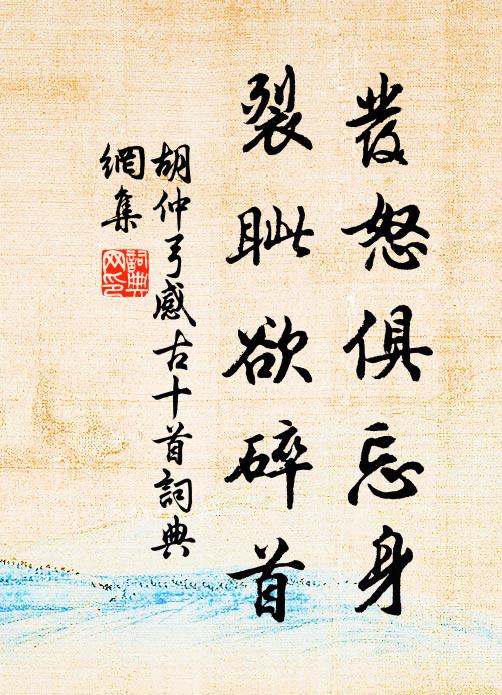 發怒俱忘身
裂眦欲碎首
胡仲弓感古十首詞典
網集
詞典网印